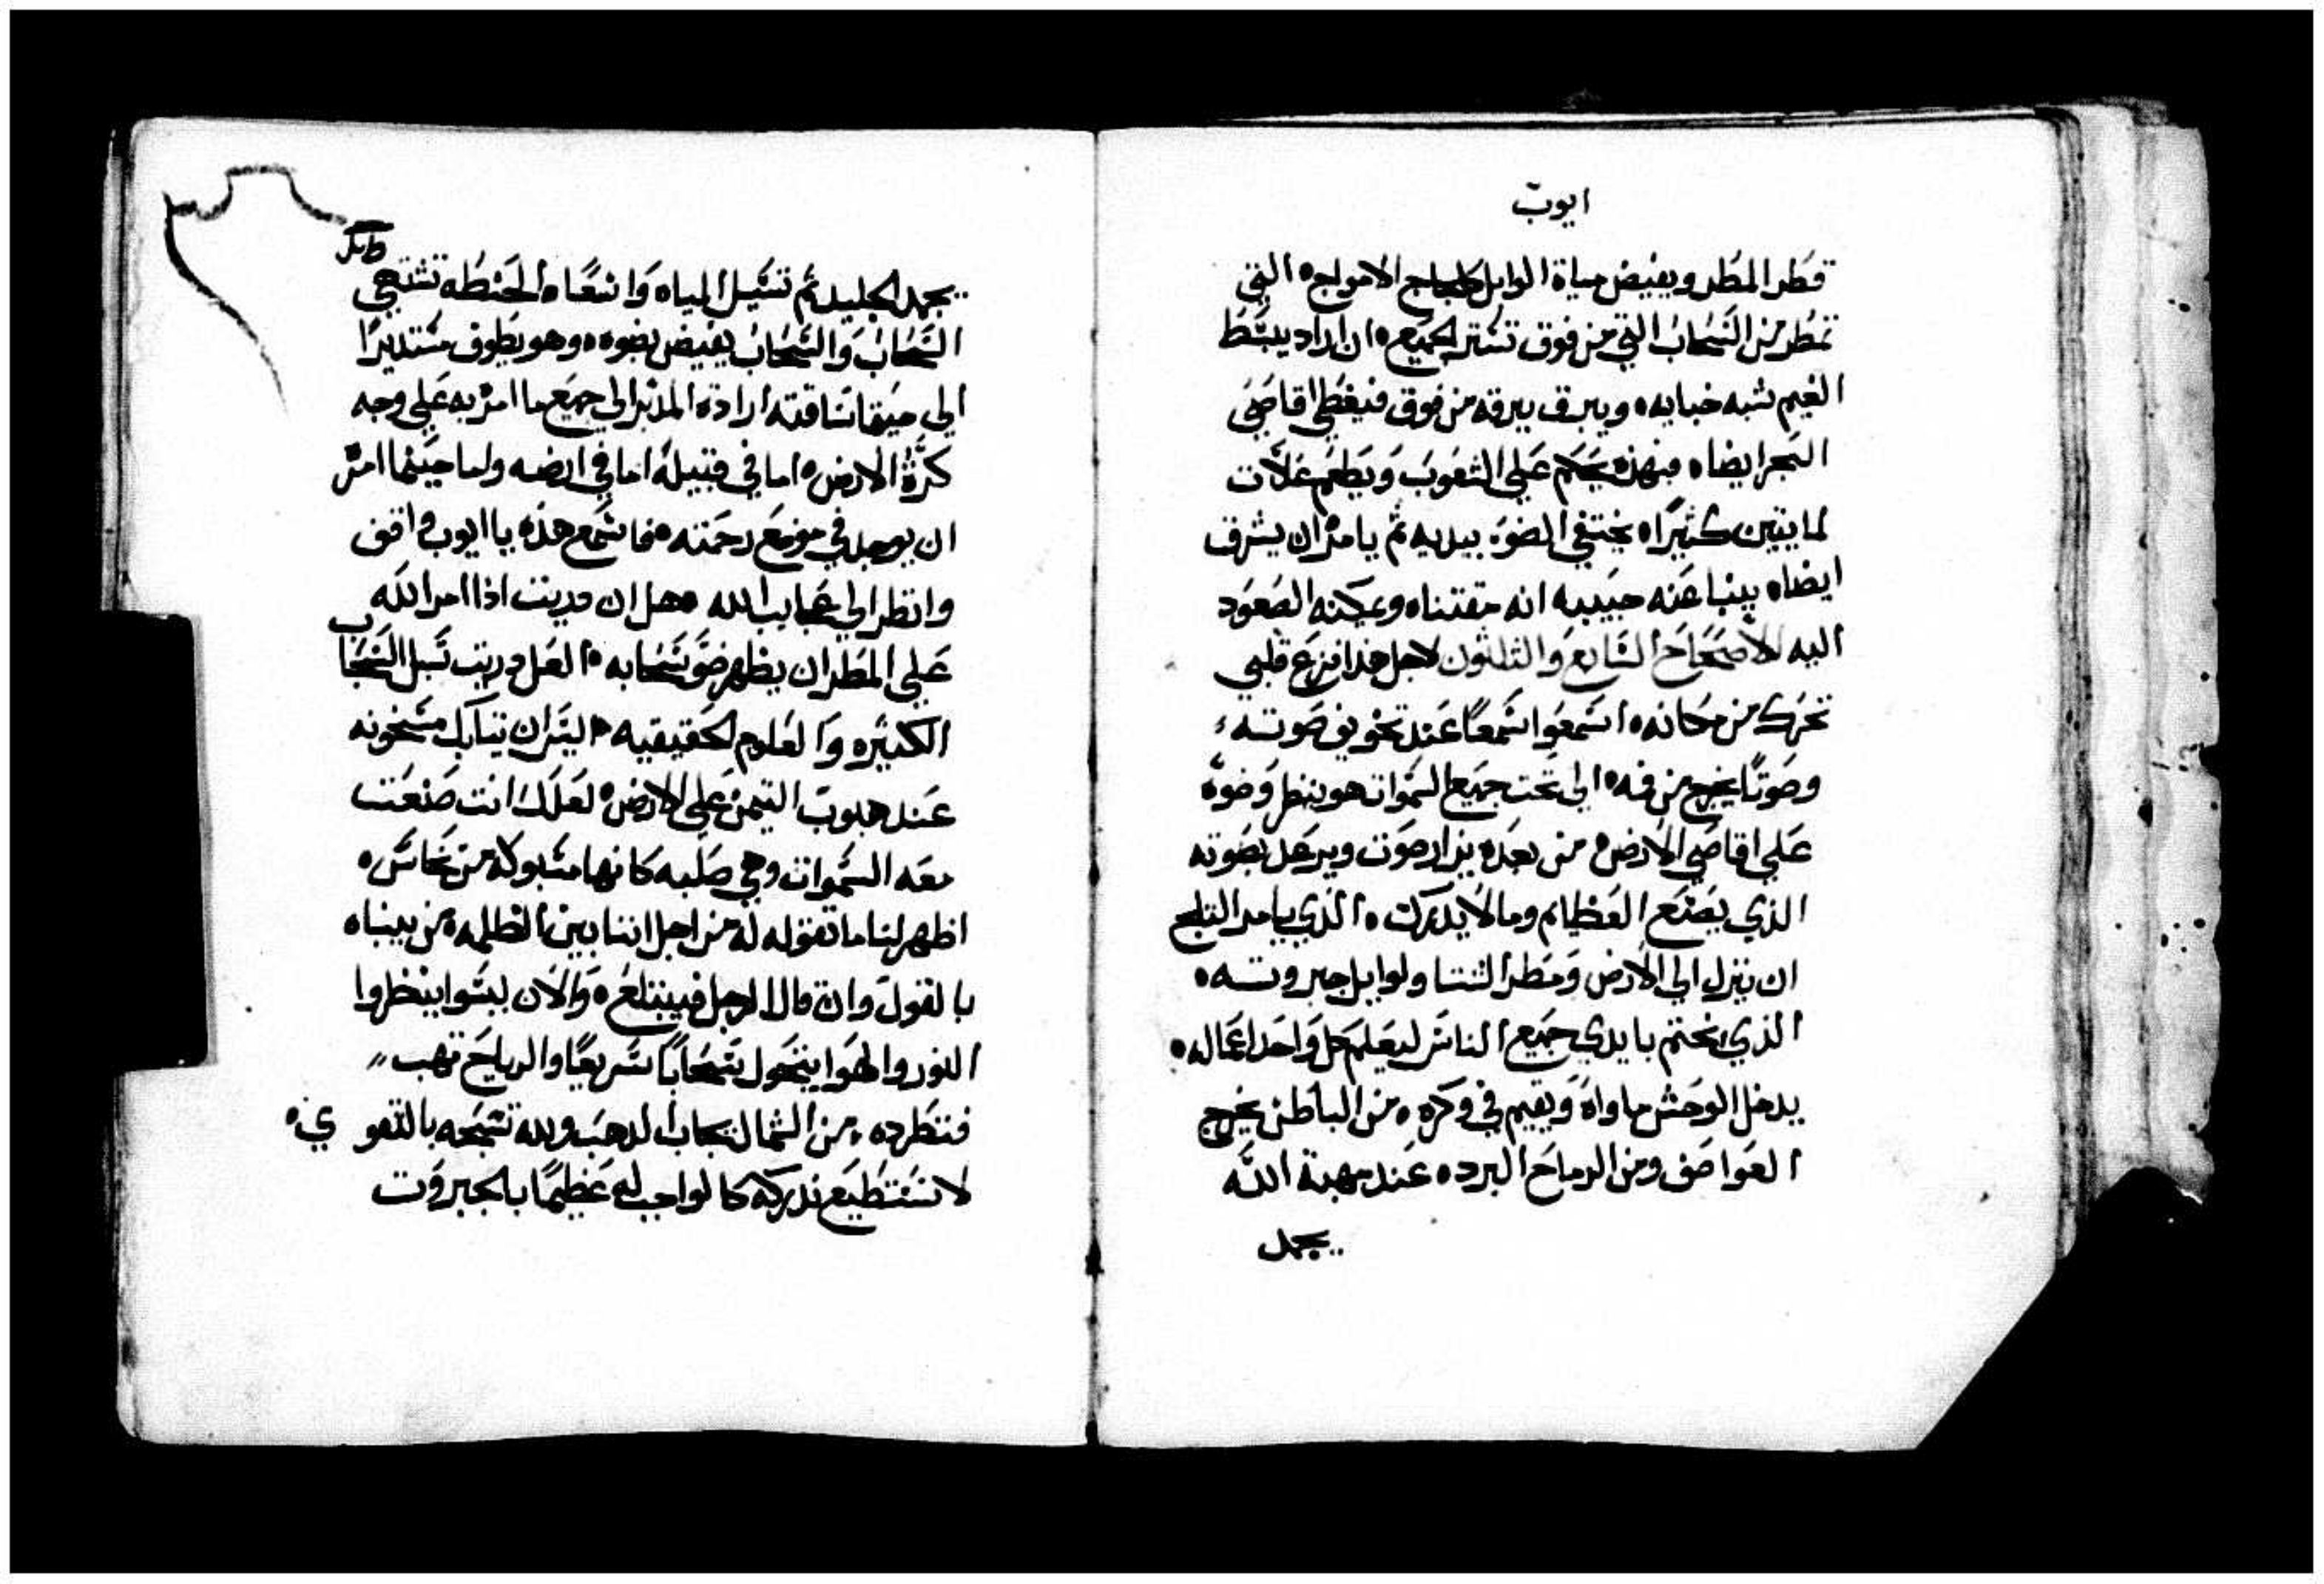 ايوب
قطر المطر ويفيض مياة الوابل كلجاج الامواج ه التي
تمطر من السحاب التي من فوق تستر الجميع ه ان اراد يبسط
الغيم شبه خبايه ه ويبرق ببرقه من فوق فيغطي اقاصي
البحر ايضا ه فبهذه يحكم علي الشعوب ويطعم غلات
لمايتين كثيرا ه يختفي الضوء بيديه ثم يامر ان يشرق
ايضا ه ينبا عنه حبيبه انه مقتناه ويمكنه الصعود
اليه الاصحاح السابع والثلثون لاجل هذا فزع قلبي
تحرك من مكانه ه اسمعوا سمعا عند تخويف صوته
وصوتا يخرج من فمه ه الي تحت جميع السموات هو ينظر وضوه
علي اقاصي الارض ه من بعده يزار صوت ويرعد بصوته
الذي يصنع العظايم وما لا يدرك ه الذي يامر الثلج
ان ينزل الي الارض ومطر الشتا ولوابل جبروته ه
الذي يختم بايدي جميع الناس ليعلم كل واحد اعماله ه
يدخل الوحش ماواه ويقيم في وكره ه من الباطن يخرج
العواصف ومن الرماح البرد ه عند مهبة الله
يجمد
يجمد الجليد ثم تسيل المياه واسعا ه الحنطه تشتهي
السحاب والسحاب يفيض بضوه ه وهو يطوف مستديرا
الي حيثما ساقته ارادة المدبر الي جميع ما امر به علي وجه
كرة الارض ه اما في قبيلة اما في ارضه واما حيثما امر
ان يوجد في موضع رحمته ه فاسمع هذه يا ايوب واقف
وانظر الي عجايب الله ه هل ان دريت اذا امر الله
علي المطر ان يظهر ضو سحابه ه العل دريت سبل السحاب
الكبيره والعلوم الحقيقيه ه اليس ان تيابك مسخونه
عند هبوب التيمن علي الارض ه لعلك انت صنعت
معه السموات وهي صلبه كانها مسبوكة من نحاس ه
اظهر لنا ما نقوله له من اجل اننا بين الظلمه ه من ينباه
بالقول وان قال الرجل فيبتلع ه والان ليسوا ينظروا
النور والهوا يتحول سحابا سريعا والرياح تهب
فتطرده ه من الشمال تجاب الدهب ولله تسبحه بالتقوي ه
لا نستطيع ندركه كالواجب له عظيما بالجبروت